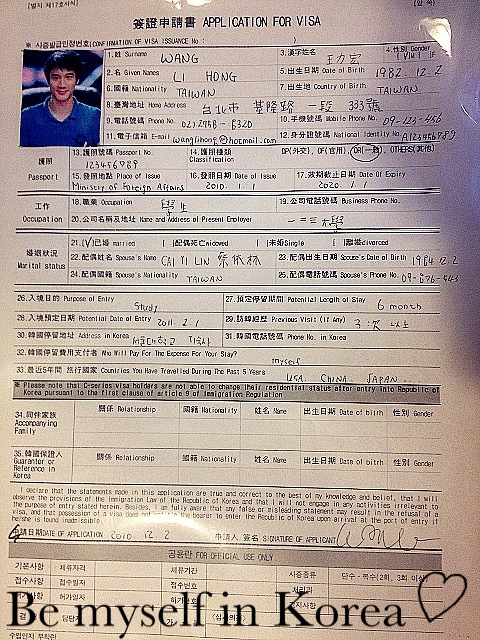 [별지 제17호서식]
(앞 쪽)
簽證申請書 APPLICATION FOR VISA
※ 시증발급인정번호(CONFIRMATION OF VISA ISSUANCE No : )
1.姓 Surname WANG 3.漢字姓名 王力宏 4.性別 Gender
2.名 Given Names LI HONG 5.出生日期 Date of Birth 1982. 12. 2
6.國籍 Nationality TAIWAN 7.出生地 Country of Birth TAIWAN
8.臺灣地址 Home Address 台北市 基隆路 一段 333號
9.電話號碼 Phone No. 02)2758-6320 10.手機號碼 Mobile Phone No. 09-123-456
11.電子信箱 E-mail wanglihong@hotmail.com 12.身分證號碼 National Identity No. A123456789
護照
Passport
13.護照號碼 Passport No. 123456789 14.護照種類 Classification DP(外交), OF(官用), OR(一般), OTHERS(其他)
15.發照地點 Place of Issue Ministry of Foreign Affairs 16.發照日期 Date of Issue 2010. 1. 1 17.效期截止日期 Date Of Expiry 2020. 1. 1
工作
Occupation
18.職業 Occupation 學生 19.公司電話號碼 Business Phone No.
20.公司名稱及地址 Name and Address of Present Employer 一二三大學
婚姻狀況
Marital status
21.[V]已婚 married [ ]配偶死亡 widowed [ ]未婚Single [ ]離婚divorced
22.配偶姓名 Spouse's Name CAI YI LIN 蔡依林 23.配偶出生日期 Spouse's Date of Birth 1984.12.2
24.配偶國籍 Spouse's Nationality TAIWAN 25.配偶電話號碼 Spouse's Phone No.
26.入境目的 Purpose of Entry study 27.預定停留期間 Potential Length of Stay 6 month
28.入境預定日期 Potential Date of Entry 2011. 2. 1 29.訪韓經歷 Previous Visit (If Any) 3次 以上
30.韓國停留地址 Address in Korea 31.韓國電話號碼 Phone No. in Korea
32.韓國停留費用支付者 Who Will Pay For The Expense For Your Stay? myself
33.最近5年間 旅行國家 Countries You Have Travelled During The Past 5 Years USA. CHINA. JAPAN.
※ Please note that C-series visa holders are not able to change their residential status after entry into Republic of
Korea pursuant to the first clause of article 9 of Immigration Regulation
34.同伴家族
Accompanying
Family
關係 Relationship 國籍 Nationality 姓名 Name 出生日期 Date of birth 性別 Gender
35.韓國保證人
Guarantor or
Reference in
Korea
關係 Relationship 國籍 Nationality 姓名 Name 出生日期 Date of birth 性別 Gender
I declare that the statements made in this application are true and correct to the best of my knowledge and belief, that I will
observe the provisions of the Immigration Law of the Republic of Korea and that I will not engage in any activities irrelevant to
the purpose of entry stated herein. Besides, I am fully aware that any false or misleading statement may result in the refusal of a
visa, and that possession of a visa does not entitle the bearer to enter the Republic of Korea upon arrival at the port of entry if
he/she is found inadmissible.
申請日期DATE OF APPLICATION 2010. 12. 2 申請人 簽名 SIGNATURE OF APPLICANT
공용란 FOR OFFICIAL USE ONLY
기본사항 체류자격 체류기간 사증종류 단수ㆍ복수(2회, 3회 이상)
접수사항 접수일자 접수번호 처리과
허가사항 허가일자 허가번호
Be myself in Korea♡
담당자
수입인지 부착란